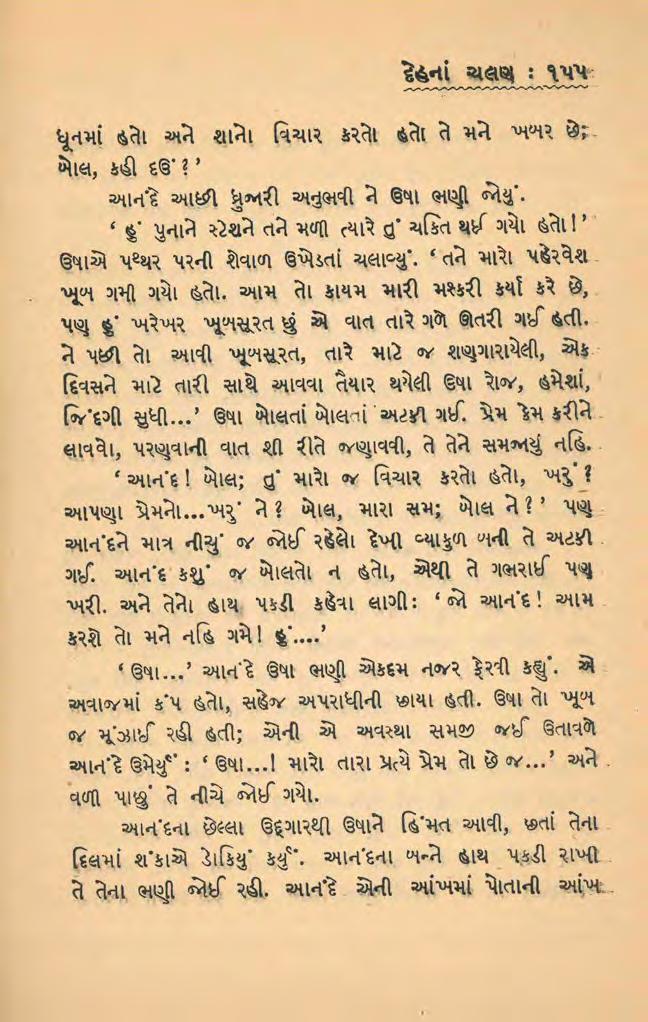 દેહનાં ચલણ : ૧૫૫
ધૂનમાં હતો અને શાનો વિચાર કરતો હતો તે મને ખબર છે;
બોલ, કહી દઉં ?’
આનંદે આછી ધ્રુજારી અનુભવી ને ઉષા ભણી જોયું.
‘ હું પુનાને સ્ટેશને તને મળી ત્યારે તું ચકિત થઈ ગયો હતો !’
ઉષાએ પથ્થર પરની શેવાળ ઉખેડતાં ચલાવ્યું. ‘ તને મારો પહેરવેશ
ખૂબ ગમી ગયો હતો. આમ તો કાયમ મારી મશ્કરી કર્યા કરે છે,
પણ હું ખરેખર ખૂબસૂરત છું એ વાત તારે ગળે ઊતરી ગઈ હતી.
ને પછી તો આવી ખૂબસૂરત, તારે માટે જ શણગારાયેલી, એક
દિવસને માટે તારી સાથે આવવા તૈયાર થયેલી ઉષા રોજ, હમેશાં,
જિંદગી સુધી...’ ઉષા બોલતાં બોલતાં અટકી ગઈ. પ્રેમ કેમ કરીને
લાવવો, પરણુવાની વાત શી રીતે જણાવવી, તે તેને સમજાયું નહિ.
‘ આનંદ ! બોલ; તું મારો જ વિચાર કરતો હતો, ખરું ?
આપણા પ્રેમનો...ખરું ને ? બોલ, મારા સમ; બોલ ને ?’ પણ
આનંદને માત્ર નીચું જ જોઈ રહેલો દેખી વ્યાકુળ બની તે અટકી
ગઈ. આનંદ કશું જ બોલતો ન હતો, એથી તે ગભરાઈ પણ
ખરી. અને તેનો હાથ પકડી કહેવા લાગી: ‘ જો આનંદ ! આમ
કરશે તો મને નહિ ગમે ! હું....’
‘ ઉષા...’ આનંદે ઉષા ભણી એકદમ નજર ફેરવી કહ્યું. એ
અવાજમાં કંપ હતો, સહેજ અપરાધીની છાયા હતી. ઉષા તો ખૂબ
જ મૂંઝાઈ રહી હતી; એની એ અવસ્થા સમજી જઈ ઉતાવળે
આનંદે ઉમેર્યું : ‘ ઉષા...! મારો તારા પ્રત્યે પ્રેમ તો છે જ...’ અને
વળી પાછું તે નીચે જોઈ ગયો.
આનંદના છેલ્લા ઉદ્દગારથી ઉષાને હિંમત આવી, છતાં તેના
દિલમાં શંકાએ ડોકિયું કર્યું. આનંદના બન્ને હાથ પકડી રાખી
તે તેના ભણી જોઈ રહી. આનંદે એની આંખમાં પોતાની આંખ